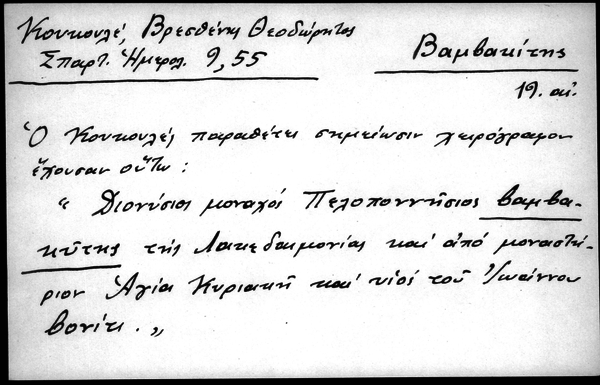 Κουκουλέ, Βρεσθένης Θεοδώρητος
Σπαρτ. Ἡμερολ. 9, 55
Βαμβακίτης
19. αἰ.
Ὁ Κουκουλές παραθέτει σημείωσιν χειρόγραφον
ἔχουσαν οὕτω :
“ Διονύσιος μοναχός Πελοποννήσιος βαμβα-
κῆτης τῆς Λακεδαιμονίας καί ἀπό μοναστή-
ριον Ἁγία Κυριακή καί υἱός τοῦ Ἰωάννου
βονίτι . „